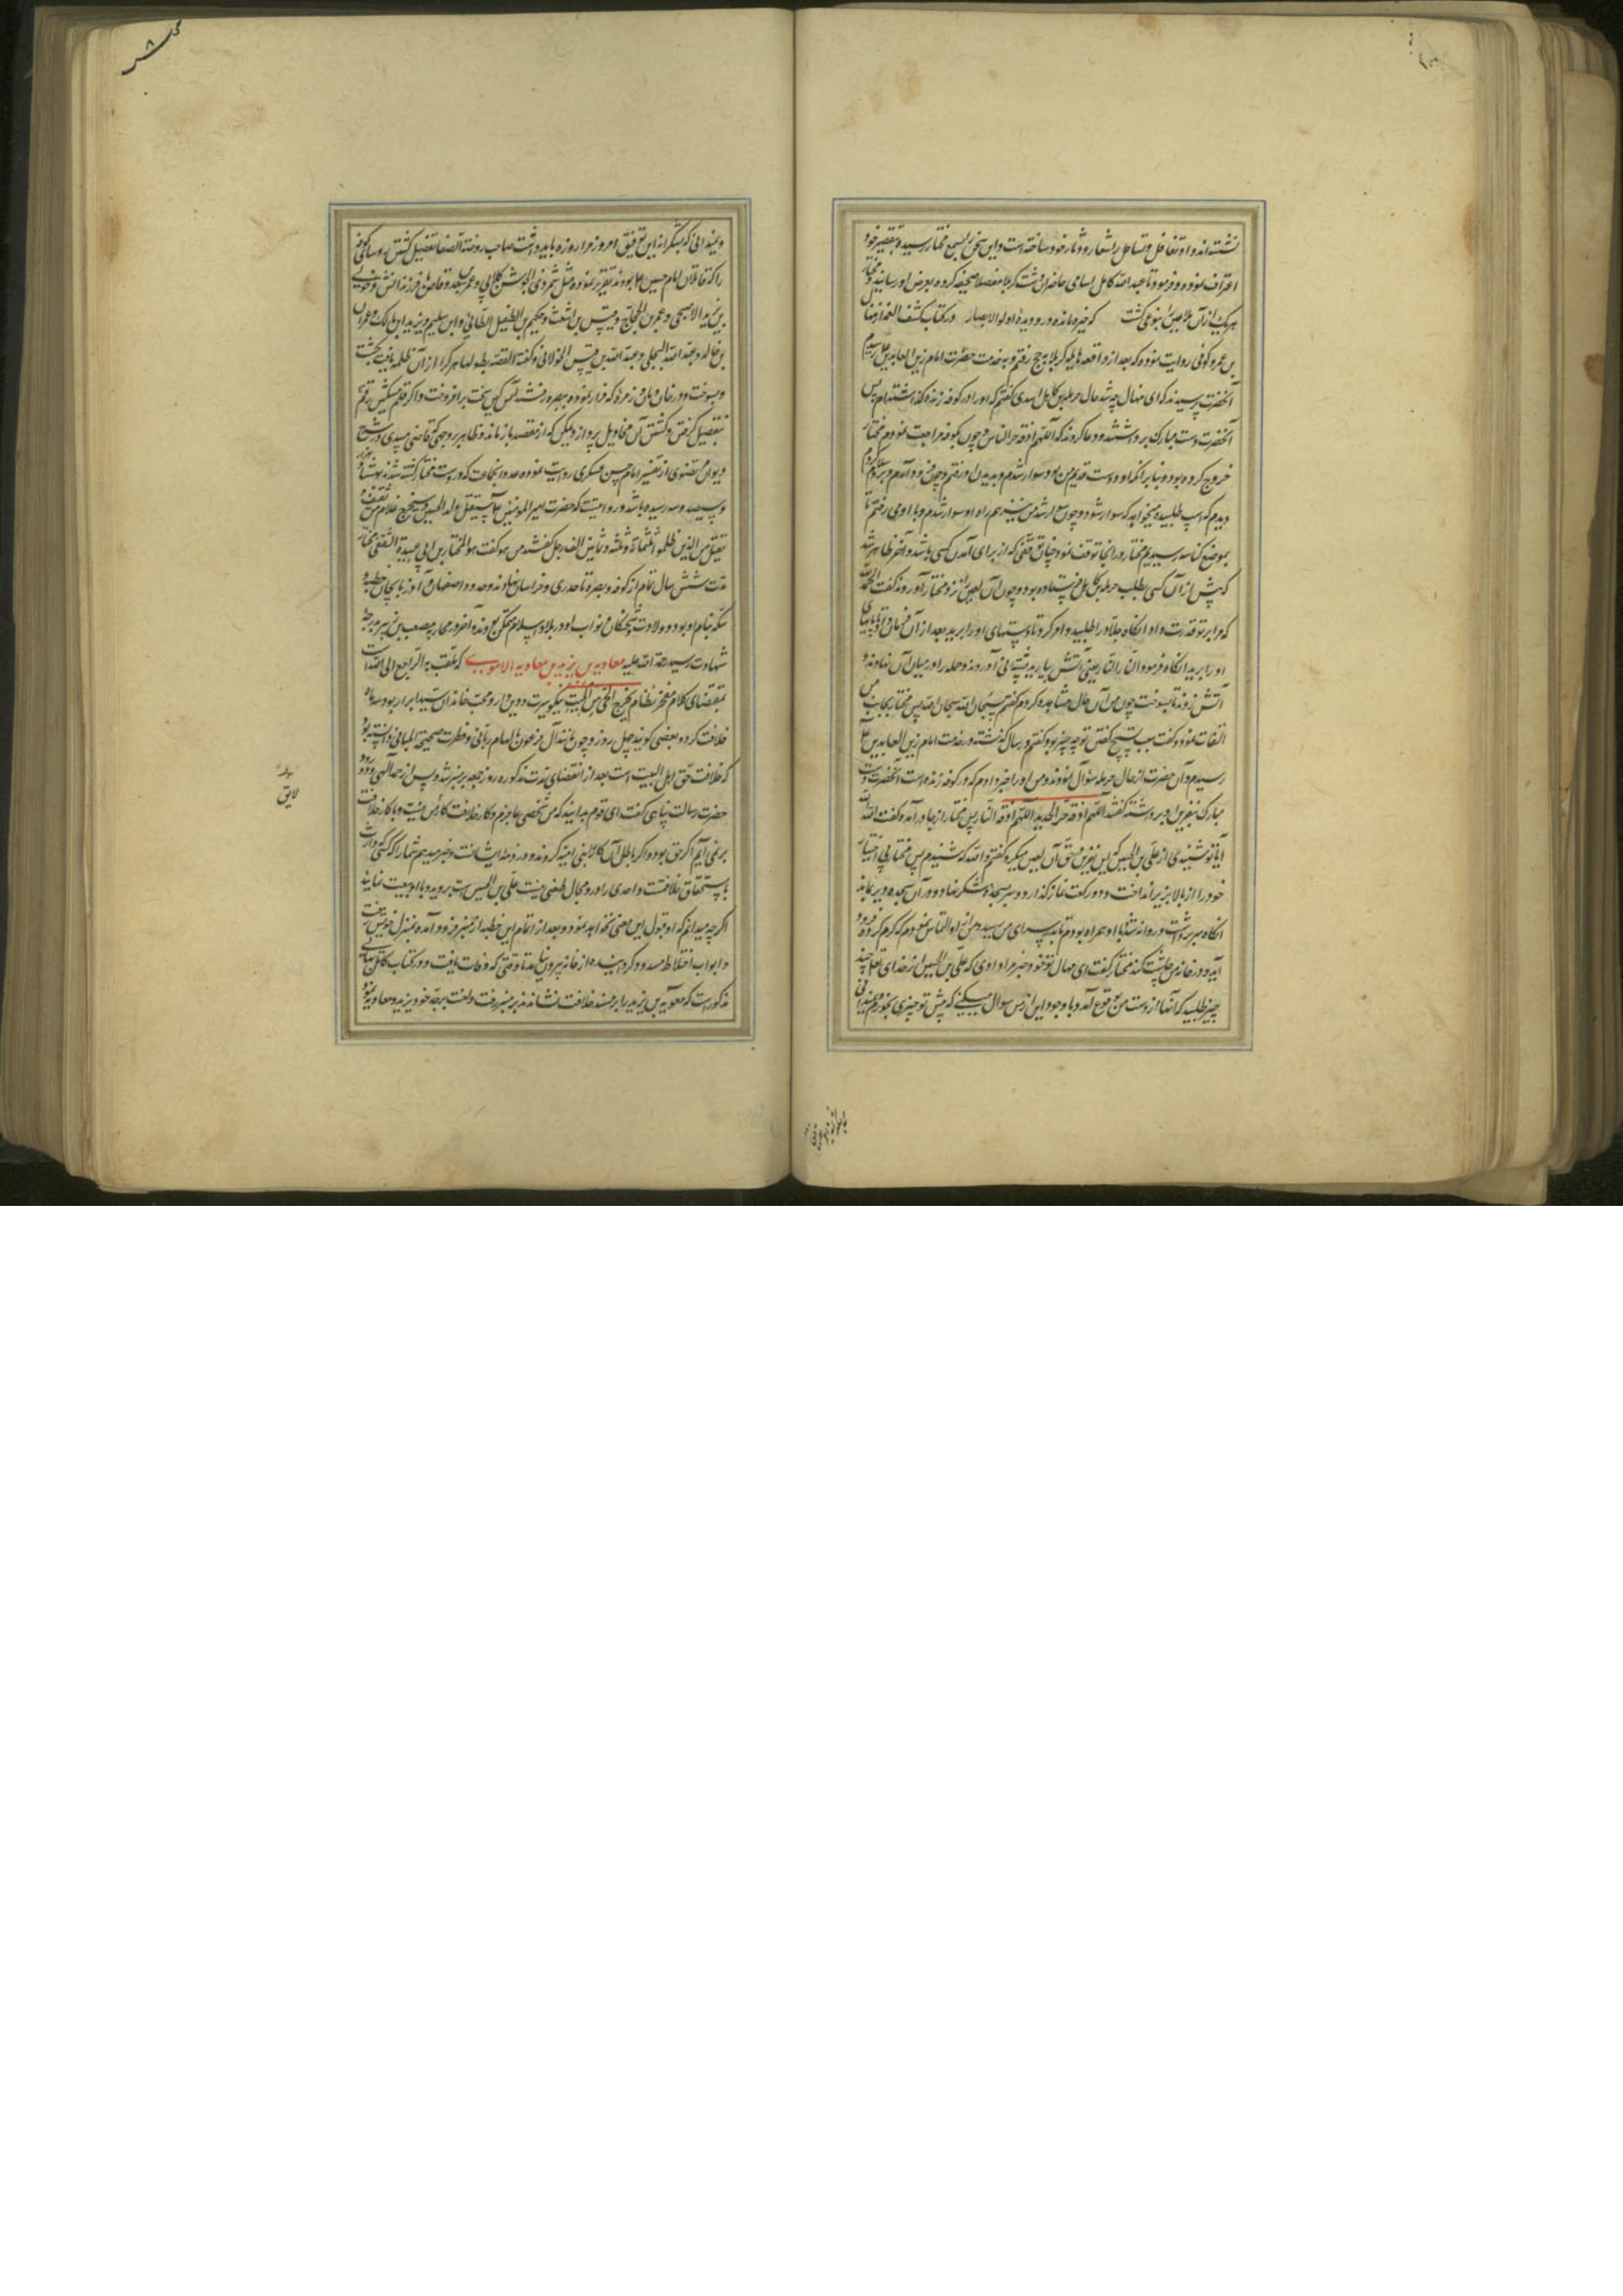 نشسته‌اند و او تغافل و تساهل را شعار و دثار خود ساخته است و این سخن بسمع مختار رسیده بتقصیر خود
اعتراف نموده و فرمود تا عبدالله کامل اسامی حاضران دشت کربلا مفصلا صحیفه کرده بعرض او رسانید و مختار
هر یک از آن ملاعین را بنوعی کشت که خیره مانده در و دیده اولوالابصار و در کتاب کشف الغمه از منهال
بن عمرو کوفی روایت نموده که بعد از واقعه هایله کربلا به حج رفتم و به خدمت حضرت امام زین العابدین علیه رسیدم
آنحضرت پرسیدند که ای منهال چه شد حال حرملة بن کاهل اسدی گفتم که او را در کوفه زنده گذاشته‌ام پس
آنحضرت دست مبارک برداشتند و دعا کردند که اللهم اذقه حر النار و چون بکوفه مراجعت نمودم مختار
خروج کرده بود و بنابر آنکه او دوست قدیم من بود سوار شدم و بدیدن او رفتم و چون فرود آمدم و بر او سلام کردم
دیدم که اسب طلبیده میخواهد که سوار شود و چون سوار شد من نیز همراه او سوار شدم و با او می رفتم تا
بموضع کناسه رسیدیم مختار در انجا توقف نمود چنان توقفی که از برای آمدن کسی باشد و آخر ظاهر شد
که پیش از آن کسی بطلب حرملة بن کاهل فرستاده بود و چون آن لعین را نزد مختار آوردند گفت الحمد لله
که مرا بر تو قدرت داد انگاه جلاد را طلبید و امر کرد تا دستهای او را برید بعد از آن فرمان داد تا پایهای
او را برید انگاه فرمود النار النار یعنی آتش بیارید نی آوردند و حرمله را در میان آن نهادند و
آتش زدند تا بسوخت چون من آن حال مشاهده کردم گفتم سبحان الله سبحان الله پس مختار بجانب من
التفات نمود و گفت سبب تسبیح گفتن تو چه چیز بود گفتم در سال گذشته در خدمت امام زین العابدین علیه
رسیدم و آن حضرت از حال حرمله سؤال نمودند و من او را خبر دادم که در کوفه زنده است آنحضرت دست
مبارک بنفرین او برداشته گفتند اللهم اذقه حر الحدید اللهم اذقه النار پس مختار از جا در آمد و گفت الله الله
آیا تو شنیدی از علی بن الحسین که این نفرین در حق آن لعین میکرد گفتم والله که شنیدم پس مختار بی اختیار
خود را از بالا بزیر انداخت و دو رکعت نماز گذارد و سر بسجده شکر نهاد و در آن سجده دیر بماند
انگاه سر برداشت و روانه شد با او همراه بودم تا بدر سرای من رسید من از او التماس نمودم که کرم کرده فرود
آید و در خانه من چاشت کند مختار گفت ای منهال تو خود خبر مرا دادی که علی بن الحسین از خدای تعالی چند
چیز طلبید که آنها از دست من بوقوع آمد و با وجود این از من سوال میکنی که پیش تو چیزی بخورم و نمیدانی
و نمیدانی که بشکرانه این توفیق امروز مرا روزه باید داشت صاحب روضة الصفا تفصیل کشتن رؤسای کوفی
را که قاتلان امام حسین علیه بودند تقریر نموده مثل شمر ذی الجوشن کلابی و عمر بن سعد وقاص و فرزندانش و خولی
بن یزید الاصبحی و عمر بن الحجاج و قیس بن اشعث و حکیم بن الطفیل الطائی و ابن سلیم و یزید ابن مالک و عمران
بن خالد و عبدالله البجلی و عبدالله بن قیس الخولانی و گفته القصه بطولها هر کرا از آن ظلمه یافت بکشت
و بسوخت
تفصیل گرفتن و کشتن آن مخاذیل پردازد یمکن که از مقصد باز ماند و ظاهر بر وجهی که قاضی میبدی در شرح
دیوان مرتضوی از تفسیر امام حسن عسکری روایت نموده عدد انجماعت که بدست مختار کشته شدند بهشتاد هزار
و سیصد و سه رسیده باشد و روایتست که حضرت امیرالمومنین علیه سیقتل ولد الحسین و سیخرج غلام من ثقیف و
یقتل من الذین ظلموا ثلثمائة و ثلثة و ثمانین الف رجل گفتند من هو گفت هو المختار بن ابی عبیدة الثقفی مختار
مدت شش سال تمام از کوفه و بصره تا حد ری و خراسان و نهاوند و حدود اصفهان و آذربایجان خطبه و
سکه بنام او بود و ولات و نشستگان و نواب او در بلاد اسلام متمکن بودند و آخر در محاربه مصعب بن زبیر بدرجه
شهادت رسید رحمة الله علیه معاویة بن یزید بن معاویه الاموی که ملقب به الراجع الی الله است
بمقتضای کلام معجز نظام یخرج الحی من المیت نیکو سیرت و دین دار و محب خاندان سید ابرار بود سه ماه
خلافت کرد و بعضی گویند چهل روز و چون مانند آل فرعون بالهام ربانی و فطرت صحیحة المبانی دانسته بود
که خلافت حق اهل البیت است بعد از انقضای مدت مذکوره روز جمعه بر منبر شد و پس از حمد الهی و درود
حضرت رسالت پناهی گفت ای قوم بدانید که من شخصی عاجزم و کار خلافت کار من نیست و با کار خلافت
بر نمی آیم اگر حق بود و اگر باطل آن کار را بنی امیه کردند و در ذمه ایشانست و خبر میدهم شما را که کسی وارث
باستحقاق خلافتست و احدی را در او مجال طعنی نیست علی بن الحسین است بروید و با او بیعت نمایید
اگرچه میدانم که او قبول این معنی نخواهد نمود و بعد از اتمام این خطبه از منبر فرود آمده بمنزل خویش رفت
و ابواب اختلاط مسدود گردانیده از خانه بیرون نیامد تا وقتی که وفات یافت و در کتاب کامل بهائی
مذکور است که معویة بن یزید را بر مسند خلافت نشاندند بر منبر رفت و لعنت بر جد خود یزید و معاویه نمود
لایق